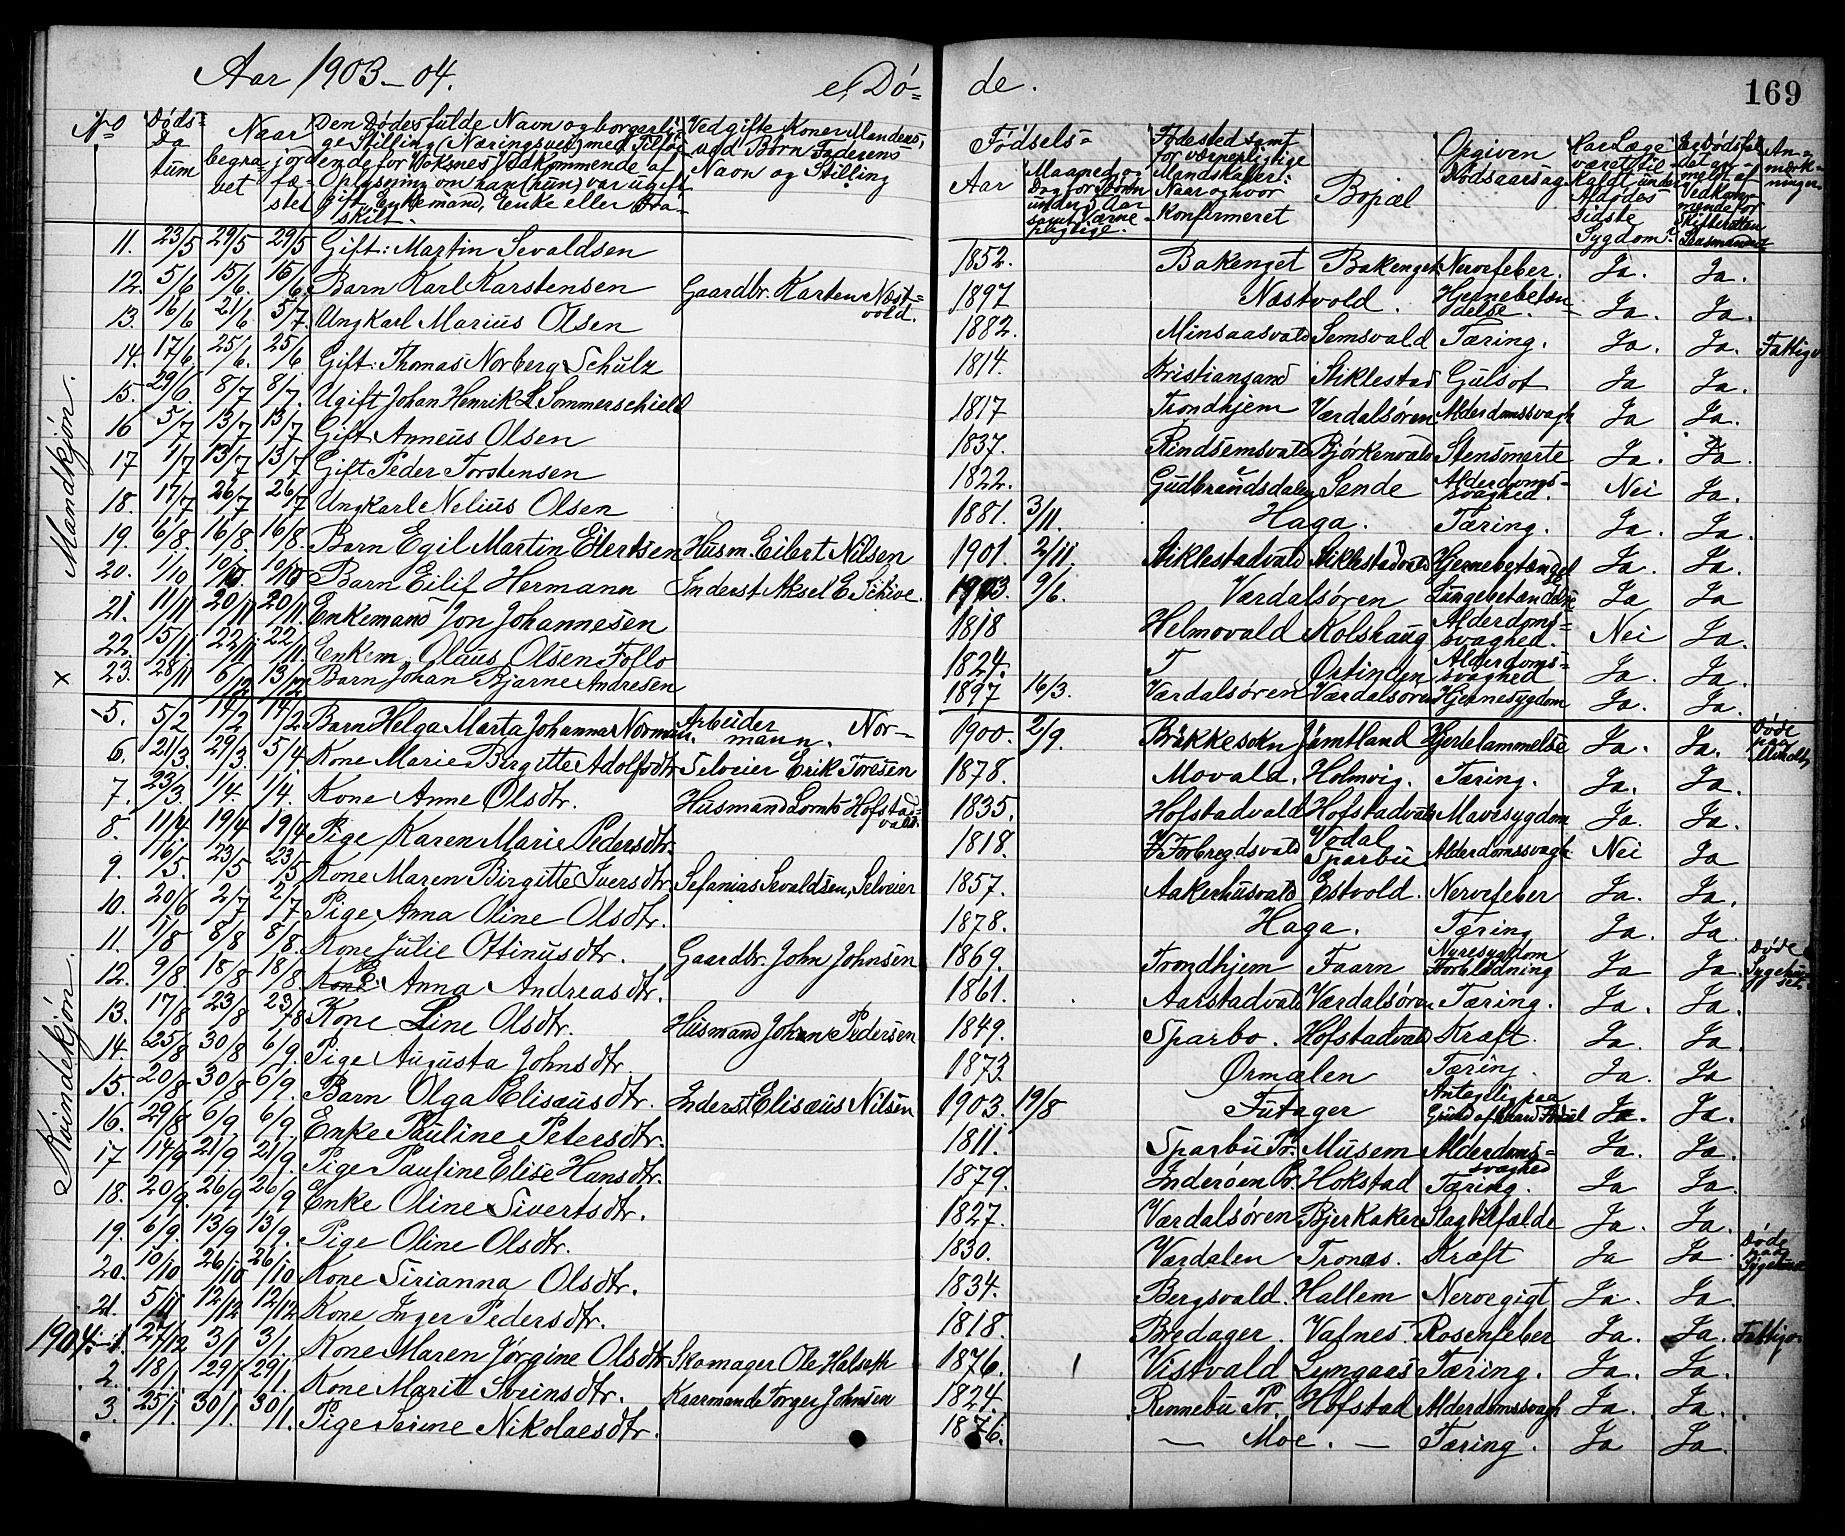 Aar 1903-04. e, Dö= de. 169
No Döds= Da tum Naar begra= vet jord fæ= stet Den Dödes fulde Navn og borgerli= ge Stilling (Næringsvei) med Tilföi= ende for Voksnes Vedkommende af Oplysning om han (hun) var ugift, gift, Enkemand, Enke eller fra= skilt. Ved gifte Koner Mandens, ved Börn Faderens Navn og Stilling Födsels= Aar Maaned og Dag for Börn under 5 Aar samt Værne= pligtige. Födested samt for værnepligtige Mandskaber: Naar og hvor konfirmeret Bopæl Opgiven Dödsaarsag. Var Læge været til= kaldt under Afdödes sidste Sygdom? Er Dödsfal det an= meldt af Vedkom= mende for Skifteretten Lensmand An= mærk= ninger
Mandkjön.
11. 23/5 29/5 29/5 Gift: Martin Sevaldsen 1852. Bakenget Bakenget Nervefeber. Ja. Ja.
12. 5/6 15/6. 15/6. Barn Karl Karstensen Gaardbr. Karten Næst= vold. 1897 Næstvold. Hjernebetæn= delse. Ja. Ja.
13. 16/6 21/6. 5/7. Ungkarl Marius Olsen 1882. Minsaasvald Semsvald Tæring. Ja. Ja. Fattigv.
14. 17/6. 25/6. 25/6 Gift: Thomas Norberg Schulz 1814. Kristiansand Stiklestad Gulsot Ja Ja.
15. 29/6. 8/7 8/7. Ugift Johan Henrik L. Sommerschield 1817 Trondhjem Værdalsören Alderdomssvagh. Ja Ja.
16 5/7 13/7 13/7 Gift Anneus Olsen 1837. Rindsemsvald Björkenvald Stensmerte Ja. Ja.
17 1/7 13/7 13/7 Gift Peder Torstensen 1822. Gudbrandsdalen Sende Alderdoms= svaghed. Nei Ja.
18. 17/7 26/7 26/7 Ungkarl Nelius Olsen 1881. 3/11. Haga. Tæring. Ja. Ja.
19. 6/8. 16/8. 16/8. Barn Egil Martin Eilertsen Husm. Eilert Nilsen 1901. 2/11. Stiklestadvald Stiklestadvald Hjernebetændel Ja. Ja.
20. 1/10 10/10. 10/10 Barn Eilif Hermann Inderst Aksel E. Schive. 1903. 9/6. Værdalsören Lungebetændelse Ja Ja
21. 11/11 20/11 20/11 Enkemand Jon Johannesen 1818 Helmovald Kolshaug Alderdoms= svaghed. Nei Ja.
22. 15/11. 22/11. 22/11. Enkem. Olaus Olsen Follo 1824. Östinden Alderdoms= svaghed Ja. Ja.
× 23. 28/11 6/12 13/12 Barn Johan Bjarne Andresen 1897 16/3. Værdalsören Værdalsören Hjernesygdom Ja. Ja.
Kvindekjön.
5. 5/2 14/2 14/2 Barn Helga Marta Johanna Normann. Arbeider Nor= mann. 1900. 2/9. Bräkkesokn Jämtland Hjertelammelse Ja. Ja. Döde paa
6. 21/3. 29/3 5/4. Kone Marie Birgitte Adolfsdtr Selveier Erik Toresen 1878. Movald. Holmvig. Tæring. Ja. Ja.
7. 23/3. 1/4. 1/4. Kone Anne Olsdtr. Husmand Lornts Hofstad= vald. 1835. Hofstadvald Hofstadvald Mavesygdom Ja. Ja.
8. 11/4. 19/4 19/4 Pige Karen Marie Pedersdtr. 1818. Forbregdsvald Vodal Sparbu Alderdomssvagh. Nei Ja
9. 16/5. 23/5 23/5 Kone Maren Birgitte Iversdtr. Sefanias Sevaldsen, Selveier 1857. Aakerhusvald Estvold. Nervefeber Ja. Ja.
10. 20/6 2/7 2/7 Pige Anna Oline Olsdtr. 1878. Haga. Tæring Ja. Ja.
11. 1/8 8/8 8/8. Kone Julie Ottinusdtr. Gaardbr. John Johnsen 1869. Trondhjem Faarn Nyresygdom Forblödning Ja Ja. Döde Sygehu= set.
12. 9/8. 18/8 18/8 Kone E. Anna Andreasdtr. 1861. Aarstadvald Værdalsören. Tæring. Ja. Ja.
13. 17/8 23/8 23/8 Kone Line Olsdtr. Husmand Johan Pedersen 1849. Sparbo. Hofstadvald Kræft. Ja. Ja.
14. 25/8 30/8 6/9. Pige Augusta Johnsdtr. 1873. Ørmælen Tæring. Ja. Ja
15. 20/8 30/8 6/9. Barn Olga Elisæusdtr. Inderst Elisæus Nilsen 1903. 19/8 Fütager Antagelig paa Grund af haard Födsel Ja. Ja.
16. 29/8 6/9 6/9. Enke Pauline Petersdtr. 1811. Sparbu Pr. Musem Alderdoms= svaghed Ja. Ja.
17 14/9 21/9 21/9 Pige Pauline Elise Hansdtr. 1879. Inderöen Pr. Hokstad Tæring. Ja Ja.
18. 20/9. 26/9 26/9 Enke Oline Sivertsdtr. 1827. Værdalsören Bjerkaker Slagtilfælde Ja. Ja.
19. 6/9. 13/9 13/9. Pige Oline Olsdtr. 1830. Værdalen Trones. Kræft Ja Ja. Döde paa Sygehuset
20. 10/10 26/10 26/10 Kone Sirianna Olsdtr. 1834. Bergsvald. Hallem Nervegigt Ja. Ja.
21. 5/11 12/12 12/12 Kone Inger Pedersdtr. 1818. Bredager. Vafnes. Rosenfeber Ja. Ja. Fattigv.
1904. 1. 27/12 3/1 3/1. Kone Maren Jörgine Olsdtr Skomager Ole Halseth 1876. Vistvald Lyngaas Tæring. Ja. Ja.
2. 18/1 29/1 29/1. Kone Marit Sveinsdtr. Kaarmand Torger Johnsen 1824. Rennebu Pr. Hofstad Alderdomssvagh Ja. Ja.
3. 25/1. 30/1. 30/1. Pige Serine Nikolaesdtr. 1876. — Moe. — Tæring. Ja Ja.